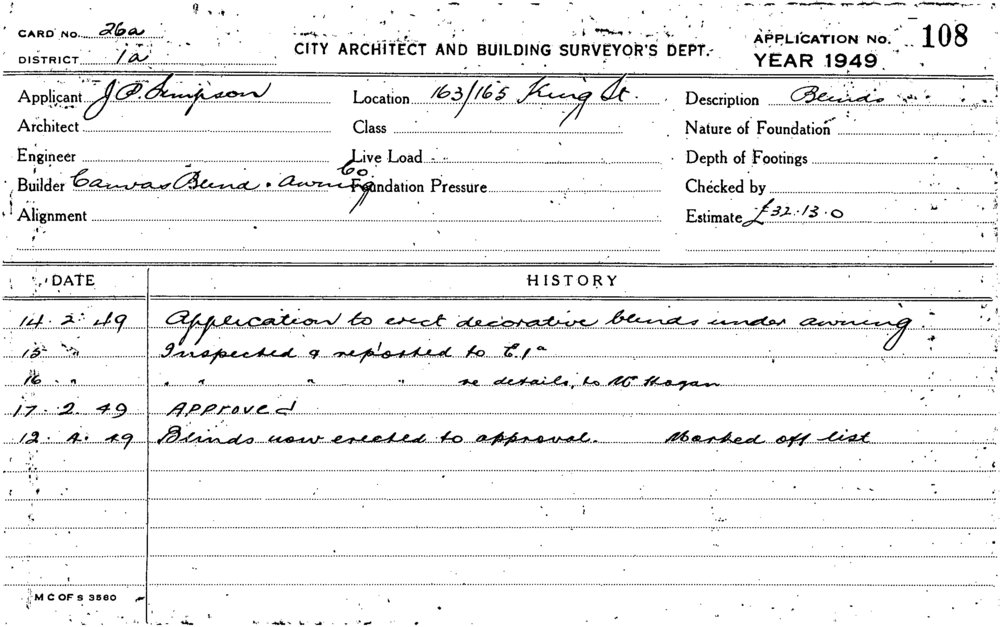 CARD NO. 26a
DISTRICT 1a
CITY ARCHITECT AND BUILDING SURVEYOR'S DEPT.
APPLICATION NO. 108
YEAR 1949
Applicant J P Simpson Location 163/165 King St. Description Blinds
Architect Class Nature of Foundation
Engineer Live Load Depth of Footings
Builder Canvas Blind & Awning Co Foundation Pressure Checked by
Alignment Estimate £32.13.0
DATE HISTORY
14.2.49 Application to erect decorative blinds under awning
15 " Inspected & reported to
16 " " " " " re details, to Mr Hogan
17.2.49 Approved
12.4.49 Blinds now erected to approval. Marked off list
M C OF S 3560